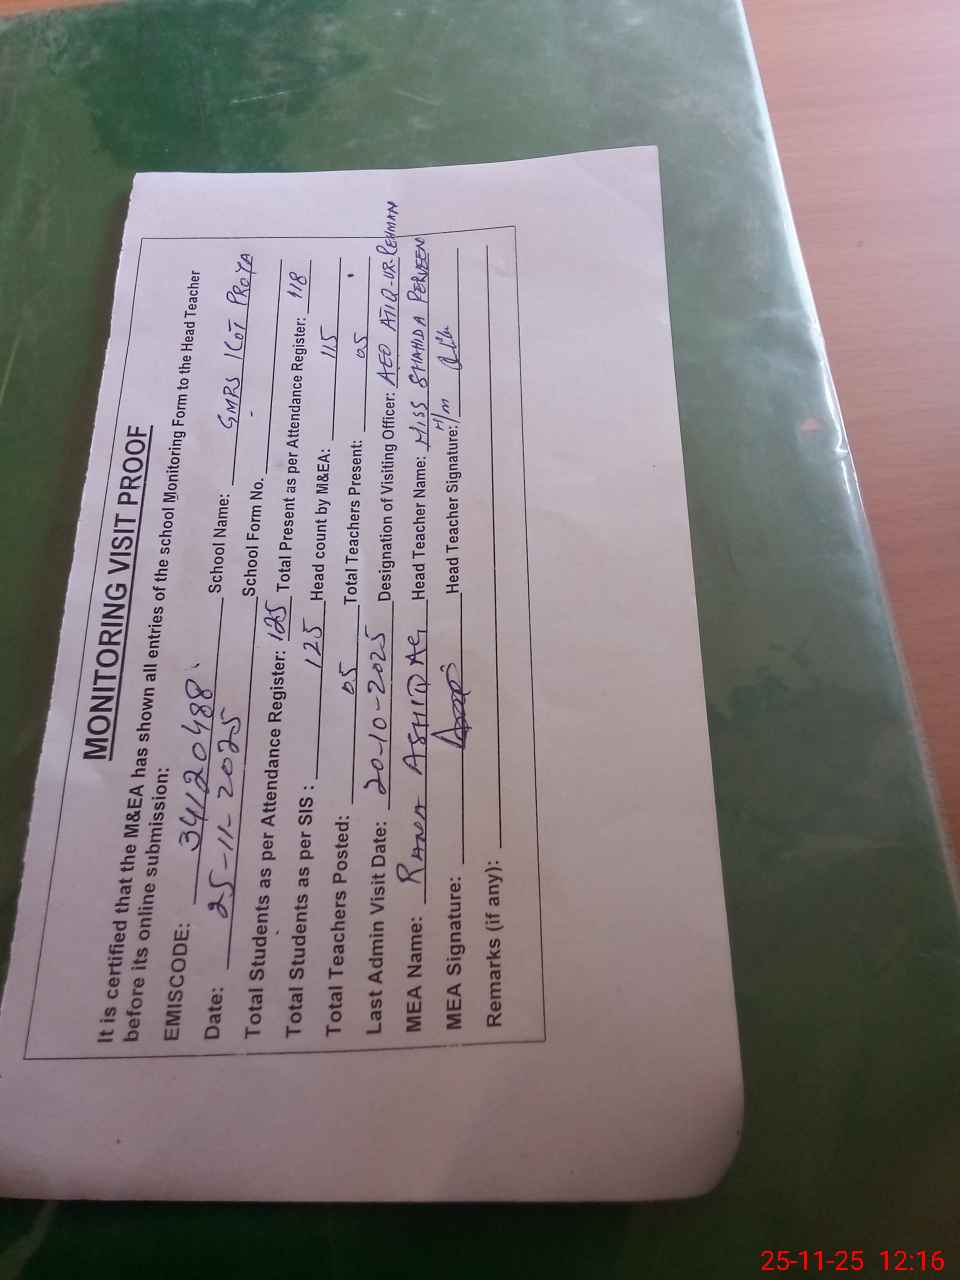 MONITORING VISIT PROOF
It is certified that the M&EA has shown all entries of the school Monitoring Form to the Head Teacher
before its online submission:
EMISCODE: 34120488 School Name: GMPS KOT PROYA
Date: 25-11-2025 School Form No.
Total Students as per Attendance Register: 125 Total Present as per Attendance Register: 118
Total Students as per SIS : 125 Head count by M&EA: 115
Total Teachers Posted: 05 Total Teachers Present: 05
Last Admin Visit Date: 20-10-2025 Designation of Visiting Officer: AEO ATIQ-UR-REHMAN
MEA Name: RANA ASHIQ Head Teacher Name: MISS SHAHIDA PERVEEN
MEA Signature: Head Teacher Signature: H/m
Remarks (if any):
25-11-25 12:16